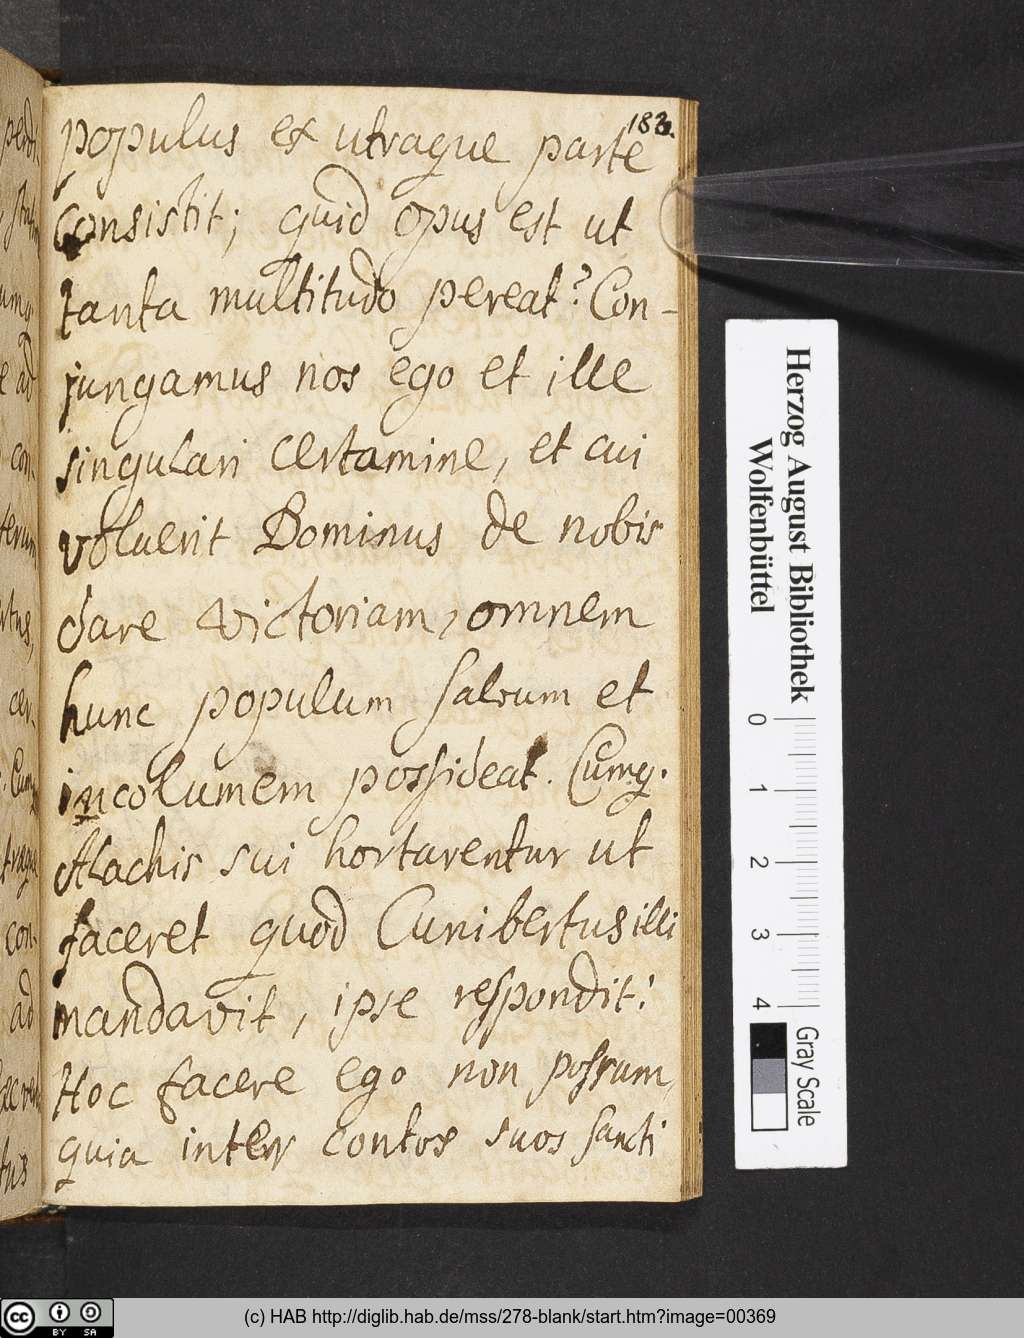 183.
populus ex utraque parte
consistit; quid opus est ut
tanta multitudo pereat? Con-
jungamus nos ego et ille
singulari certamine, et cui
voluerit Dominus de nobis
dare victoriam, omnem
hunc populum salvum et
incolumem possideat. Cumq.
Alachis sui hortarentur ut
faceret quod Cunibertus illi
mandavit, ipse respondit:
Hoc facere ego non possum,
quia inter contos suos sancti
Herzog August Bibliothek
Wolfenbüttel
0 1 2 3 4
Gray Scale
(c) HAB http://diglib.hab.de/mss/278-blank/start.htm?image=00369
cc BY SA